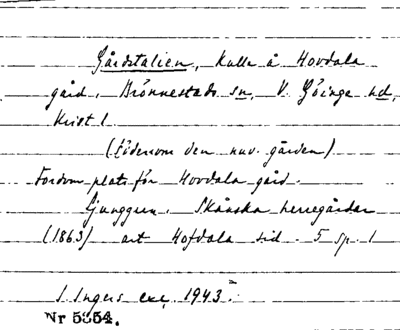 Gårdstalien, Kulle å Hovdala
gård, Brönnestads sn, V. Göinge hd,
Krist l
(Söderom den nuv. gården)
Fordom plats för Hovdala gård.
Ljunggren. Skånska herregårdar
(1863) art Hofdala sid. 5 sp. 1
I. Ingers exc. 1943.
Nr 5354.